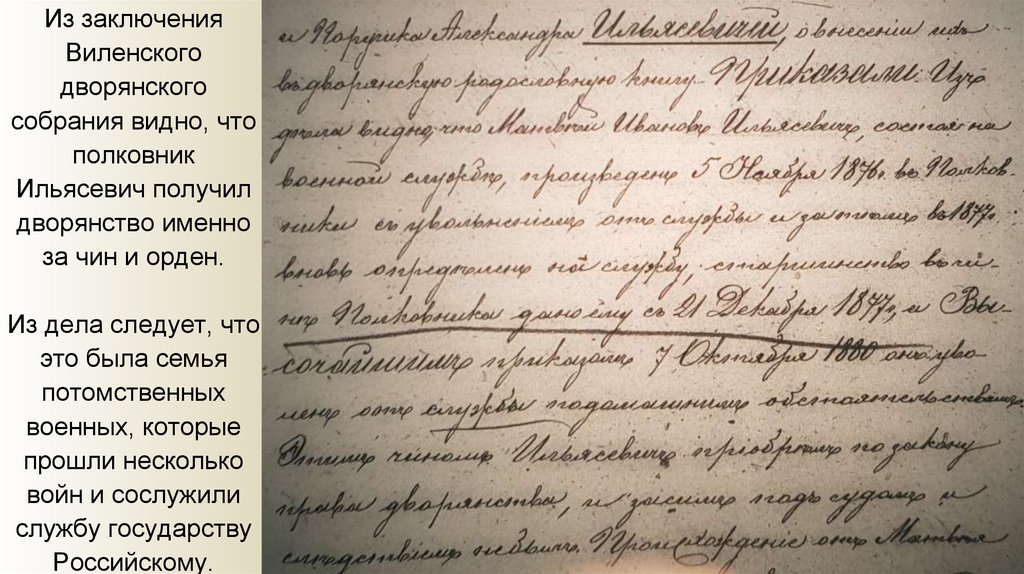 Из заключения
Виленского
дворянского
собрания видно, что
полковник
Ильясевич получил
дворянство именно
за чин и орден.
Из дела следует, что
это была семья
потомственных
военных, которые
прошли несколько
войн и сослужили
службу государству
Российскому.
и Поручика Александра Ильясевичей, о внесении ихъ
въ дворянскую родословную книгу Приказали: Изъ
дѣла видно, что Матвѣй Ивановъ Ильясевичъ, состоя на
военной службѣ, произведенъ 5 Ноября 1876 г. въ Полков-
ники съ увольненіемъ отъ службы и затѣмъ въ 1877 г.
вновь опредѣленъ на службу, старшинство въ чи-
нѣ Полковника дано ему съ 21 Декабря 1877 г., и Вы-
сочайшимъ приказомъ 7 Октября 1880 онъ уво-
ленъ отъ службы по домашнимъ обстоятельствамъ.
Этимъ чиномъ Ильясевичъ пріобрѣлъ по закону
права дворянства, и засимъ подъ судомъ и
слѣдствіемъ не былъ. Происхожденіе отъ Матвѣя